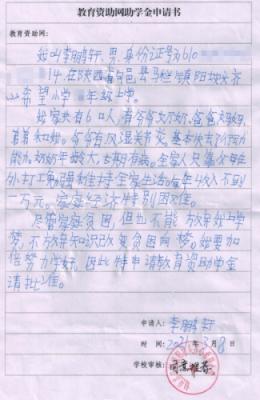 教育资助网助学金申请书
教育资助网:
我叫李鹏轩、男、身份证号610
14.在陕西省
希望小学 年级上学。
我家共有6口人,有爷爷、奶奶、爸爸、妈妈、
和我。爷爷有风湿关节炎,基本失去了行动
能力。奶奶年龄大,长期有病。全家人只靠父母在
外打工勉强维持全家生活,每年收入不到
一万元。家庭经济特别困难。
尽管家庭贫困,但也不能放弃我上学
梦,不放弃知识改变贫困的梦。我要加
倍努力学好。因此特申请教育资助学金
请批准。
申请人: 李鹏轩
时 间: 2021年3月8日
学校审核: 同意推荐